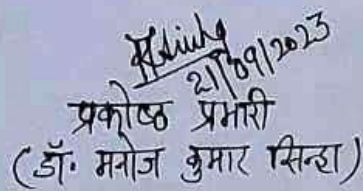 21/09/2023
प्रकोष्ठ प्रभारी
(डॉ. मनोज कुमार सिन्हा)